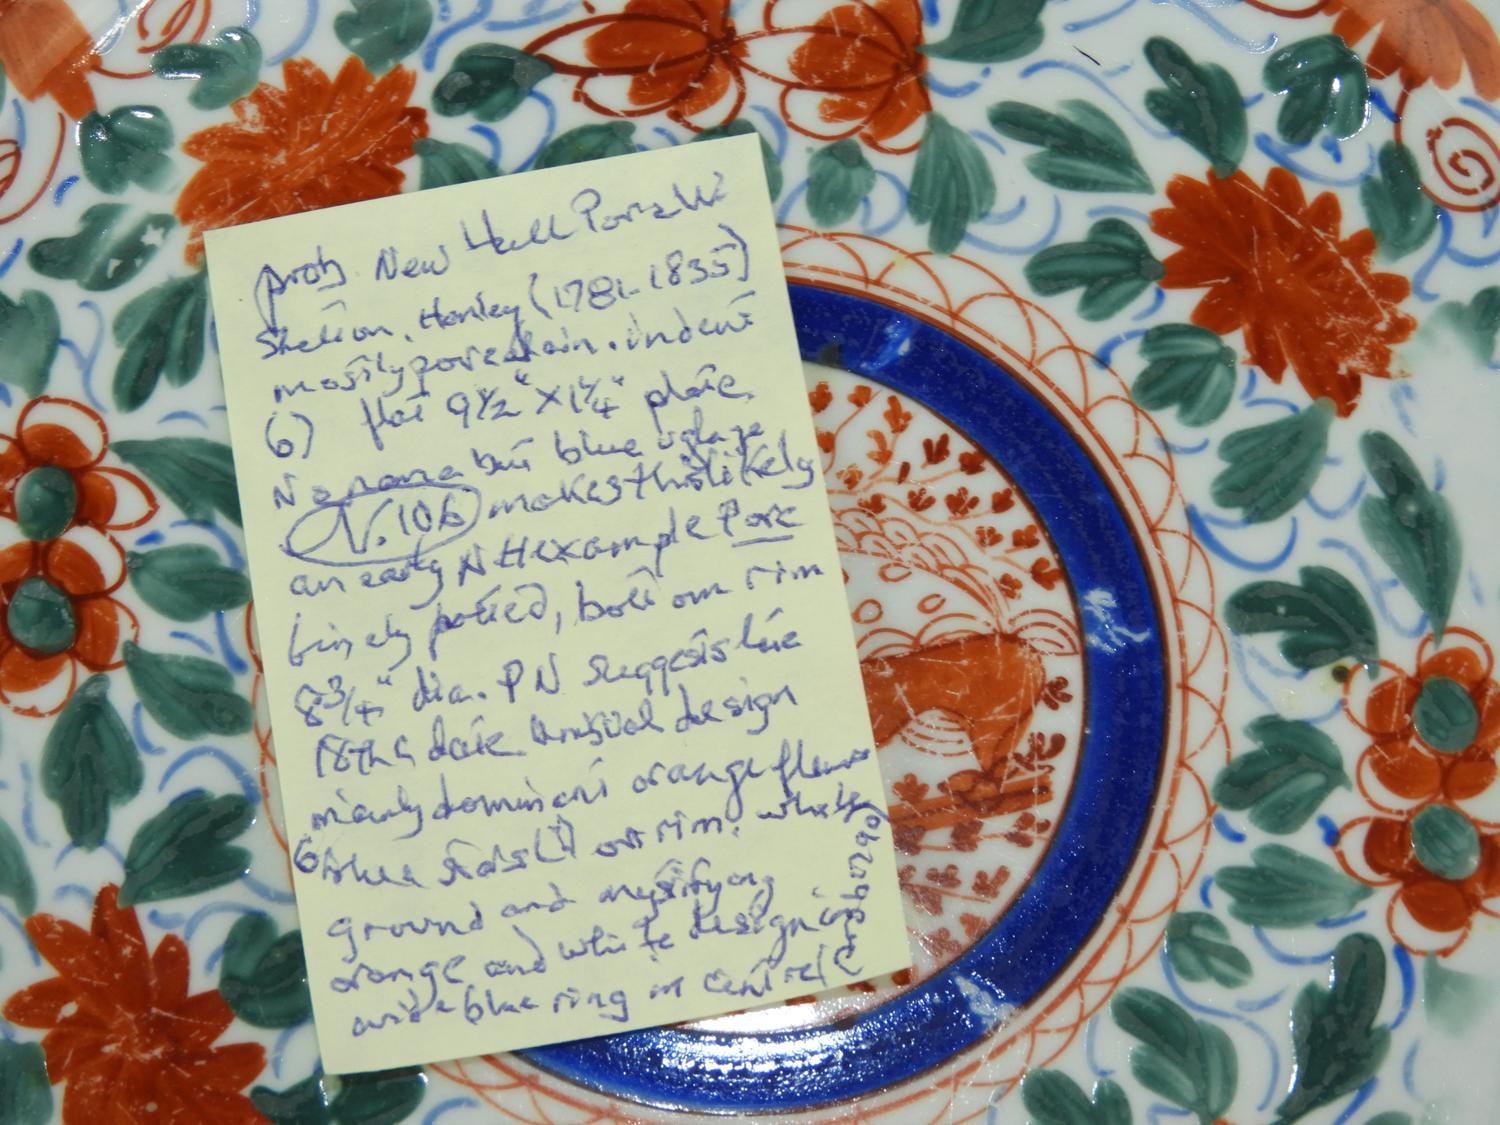 prob. New Hall Porc W.
Shelton, Henley (1781-1835)
mostly porcelain. indent
(6) flat 9½" x 1¼" plate
No name but blue u glaze
N. 106 makes this likely
an early NH example Porc
finely potted, bottom rim
8¾" dia. PN suggests late
18th C date Unusual design
mainly dominant orange flower
6 blue (1) on rim. white
ground and mystifying
orange and white design in
wide blue ring in centre